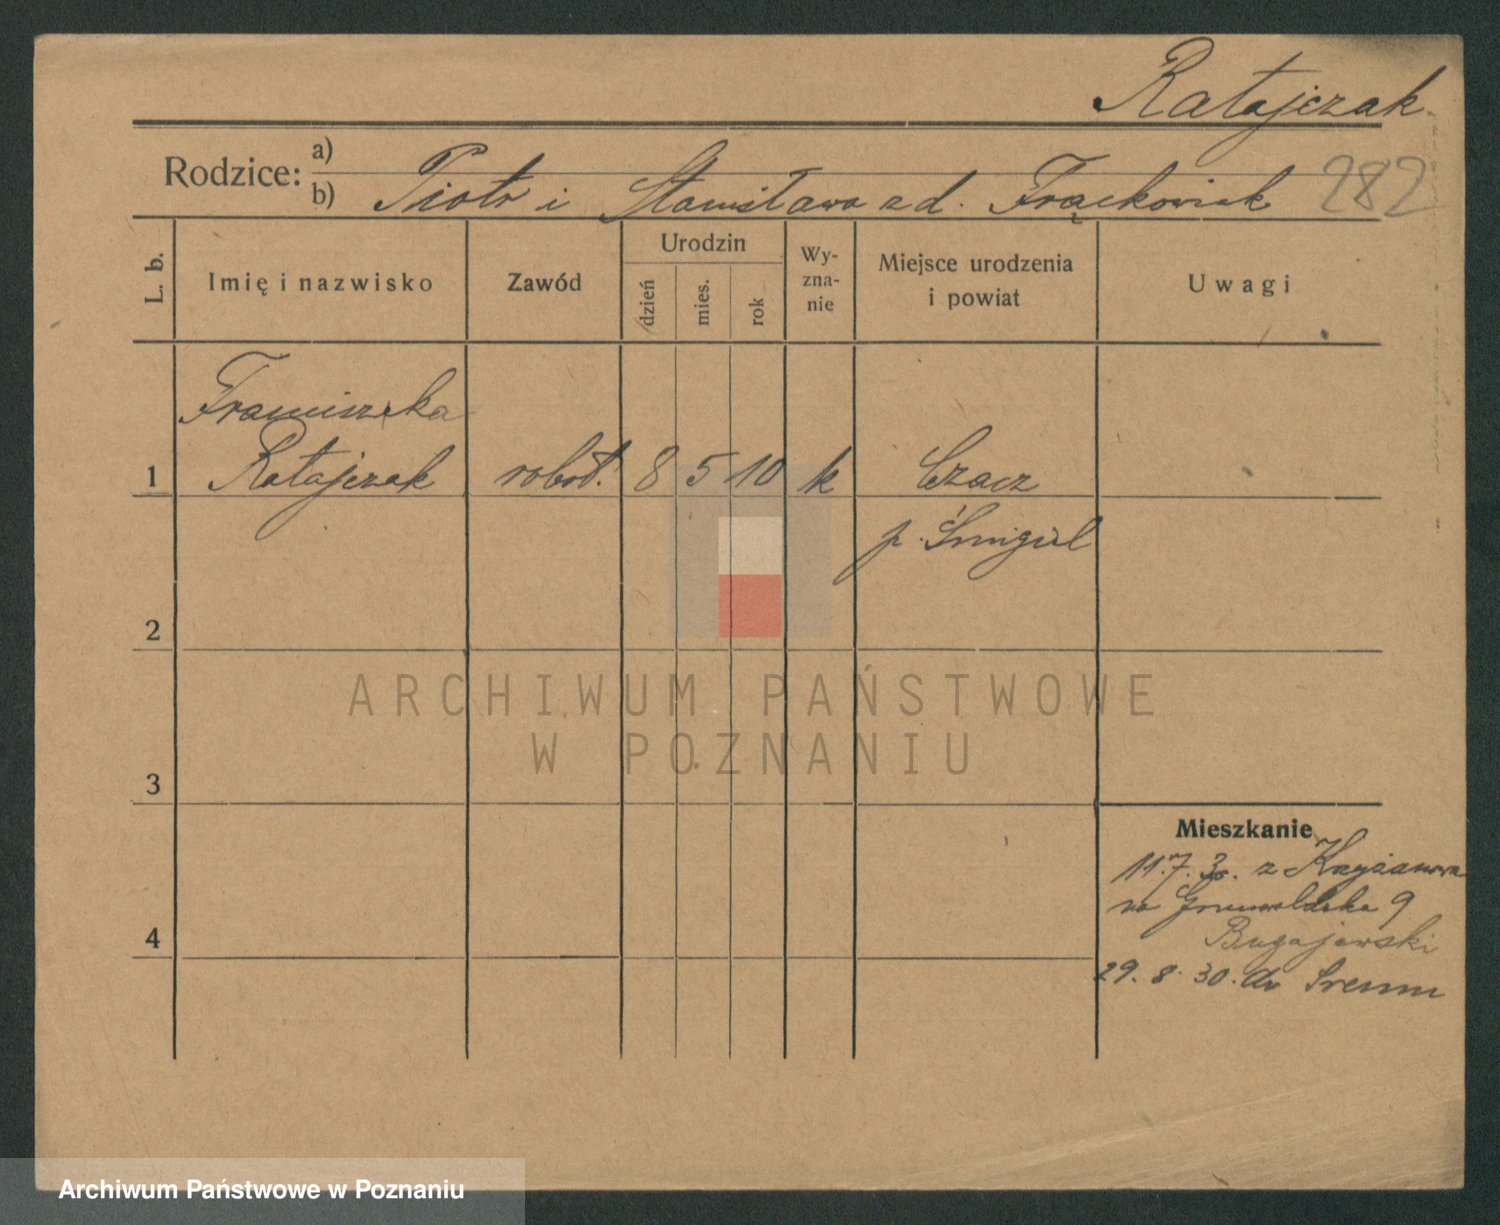 Ratajczak
282
Rodzice: a)
b) Piotr i Stanisława z d. Frąckowiak
L. b.
Imię i nazwisko
Zawód
Urodzin
dzień
mies.
rok
Wy-
zna-
nie
Miejsce urodzenia
i powiat
Uwagi
Franciszka
1 Ratajczak robot. 8 5 10 k Czacz
p. Śmigiel
2
3
4
Mieszkanie
11.7.30. z Krzyżanowa
na Grunwaldzka 9
Bugajewski
29.8.30. do Śremu
ARCHIWUM PAŃSTWOWE
W POZNANIU
Archiwum Państwowe w Poznaniu